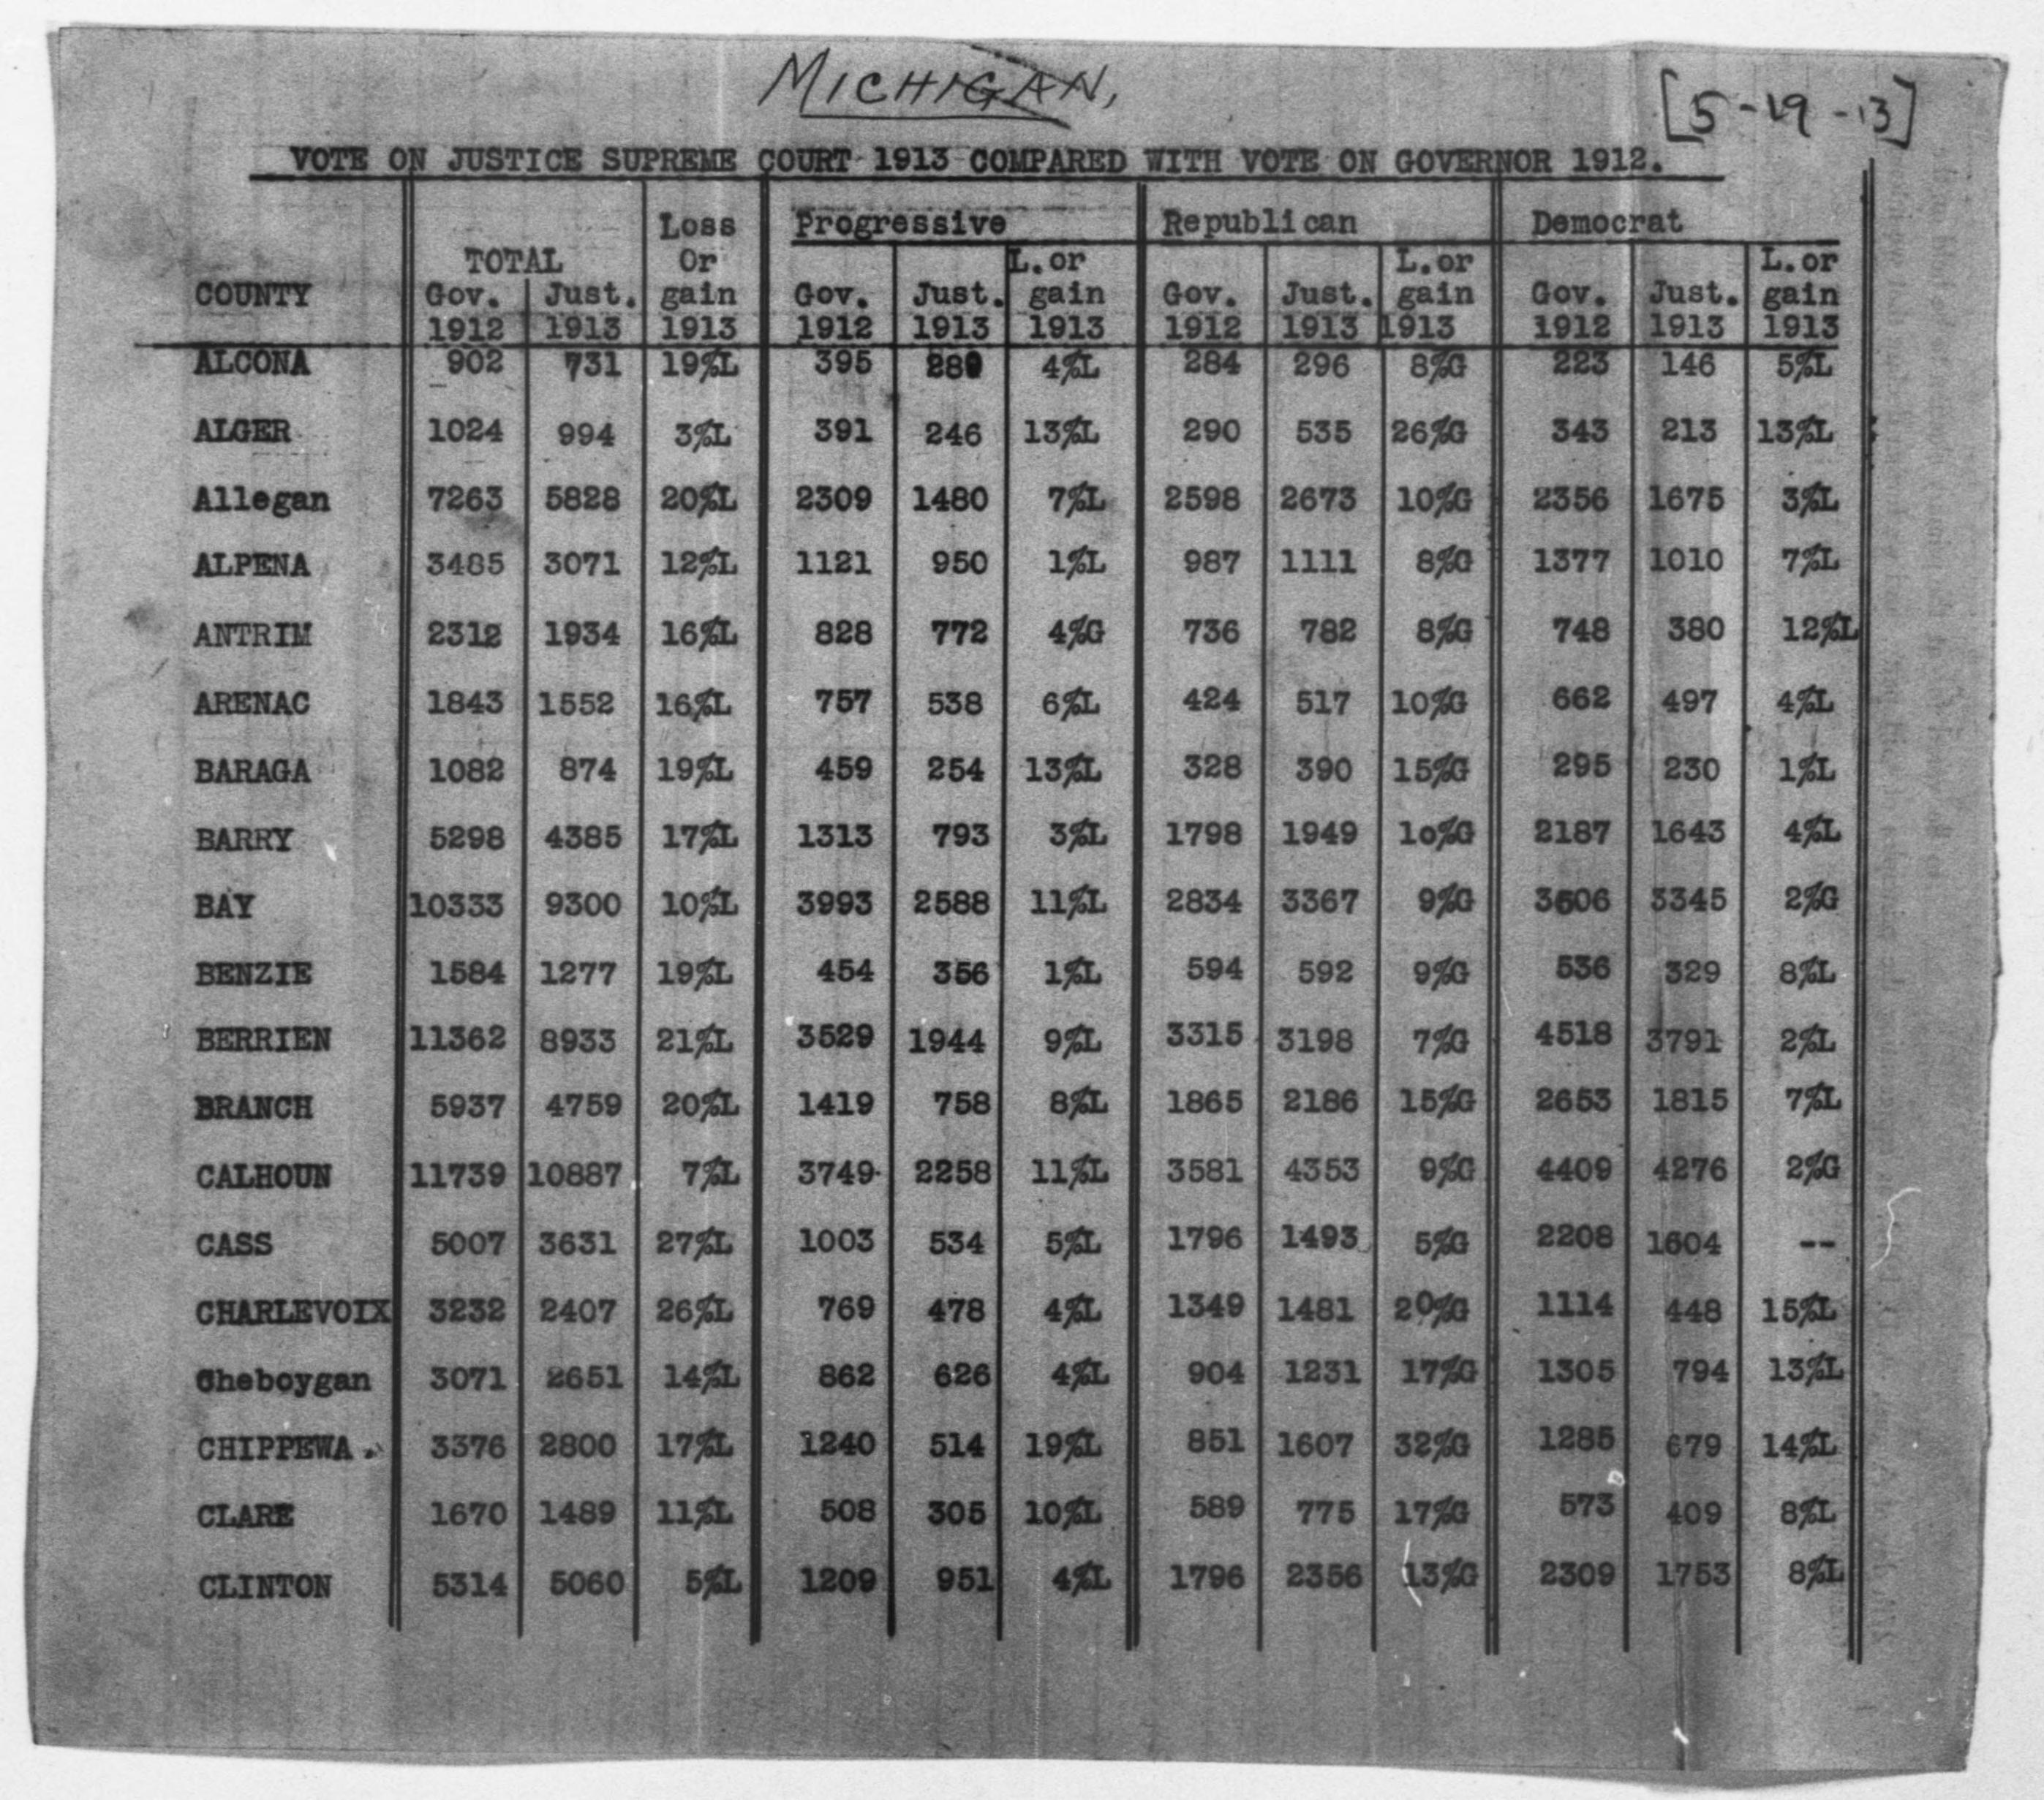 MICHIGAN,
[5-19-13]
VOTE ON JUSTICE SUPREME COURT 1913 COMPARED WITH VOTE ON GOVERNOR 1912.
Loss Progressive Republican Democrat
TOTAL Or L.or L.or L.or
COUNTY Gov. Just. gain Gov. Just. gain Gov. Just. gain Gov. Just. gain
1912 1913 1913 1912 1913 1913 1912 1913 1913 1912 1913 1913
ALCONA 902 731 19%L 395 289 4%L 284 296 8%G 223 146 5%L
ALGER 1024 994 3%L 391 246 13%L 290 535 26%G 343 213 13%L
Allegan 7263 5828 20%L 2309 1480 7%L 2598 2673 10%G 2356 1675 3%L
ALPENA 3485 3071 12%L 1121 950 1%L 987 1111 8%G 1377 1010 7%L
ANTRIM 2312 1934 16%L 828 772 4%G 736 782 8%G 748 380 12%L
ARENAC 1843 1552 16%L 757 538 6%L 424 517 10%G 662 497 4%L
BARAGA 1082 874 19%L 459 254 13%L 328 390 15%G 295 230 1%L
BARRY 5298 4385 17%L 1313 793 3%L 1798 1949 10%G 2187 1643 4%L
BAY 10333 9300 10%L 3993 2588 11%L 2834 3367 9%G 3506 3345 2%G
BENZIE 1584 1277 19%L 454 356 1%L 594 592 9%G 536 329 8%L
BERRIEN 11362 8933 21%L 3529 1944 9%L 3315 3198 7%G 4518 3791 2%L
BRANCH 5937 4759 20%L 1419 758 8%L 1865 2186 15%G 2653 1815 7%L
CALHOUN 11739 10887 7%L 3749 2258 11%L 3581 4353 9%G 4409 4276 2%G
CASS 5007 3631 27%L 1003 534 5%L 1796 1493 5%G 2208 1604 --
CHARLEVOIX 3232 2407 26%L 769 478 4%L 1349 1481 20%G 1114 448 15%L
Cheboygan 3071 2651 14%L 862 626 4%L 904 1231 17%G 1305 794 13%L
CHIPPEWA 3376 2800 17%L 1240 514 19%L 851 1607 32%G 1285 679 14%L
CLARE 1670 1489 11%L 508 305 10%L 589 775 17%G 573 409 8%L
CLINTON 5314 5060 5%L 1209 951 4%L 1796 2356 13%G 2309 1753 8%L